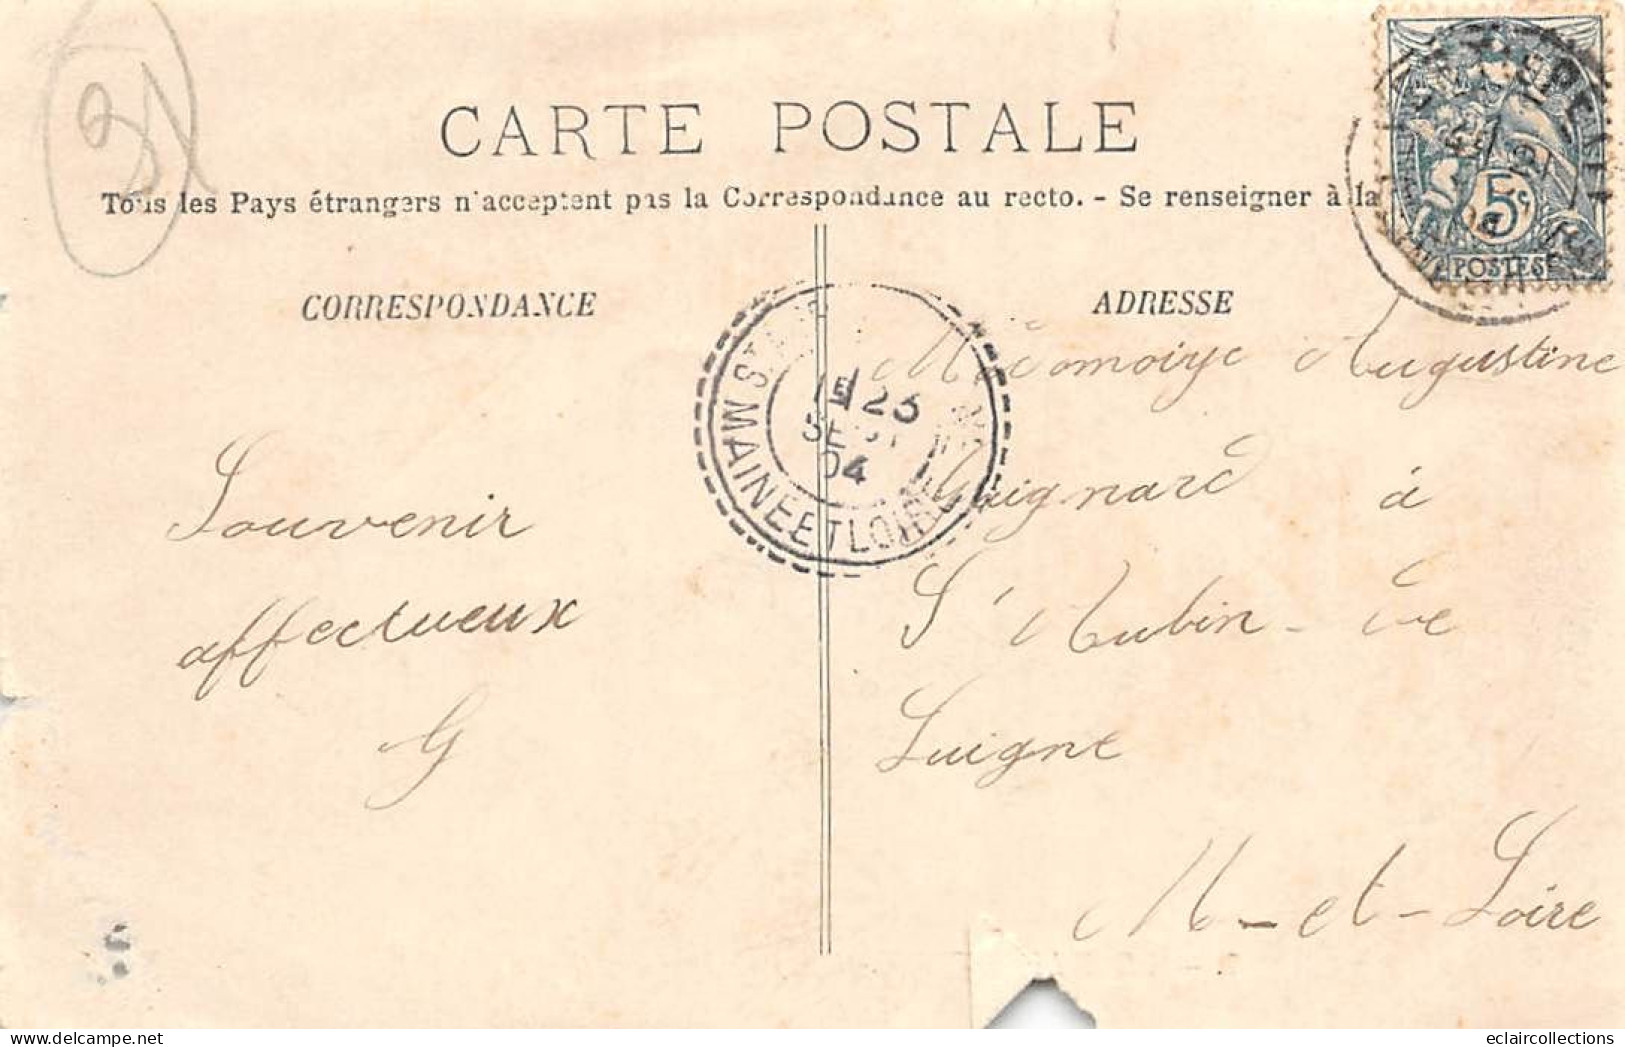 CARTE POSTALE
Tous les Pays étrangers n'acceptent pas la Correspondance au recto. - Se renseigner à la
5c
POSTES
CORRESPONDANCE
ADRESSE
Augustine
23
SEPT
04
MAINE ET LOIRE
Guignard à
St Aubin-de
Luigne
M-et-Loire
Souvenir
affectueux
G
eclaircollections